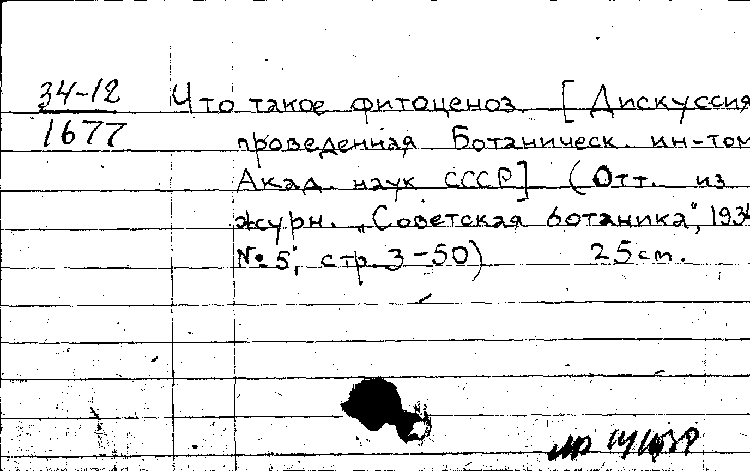 34-12
1677
Что такое фитоценоз [Дискуссия
проведенная Ботаническ. ин-том
Акад. наук СССР] (Отт. из
журн. „Советская ботаника", 1934
№5, стр. 3-50) 25 см.